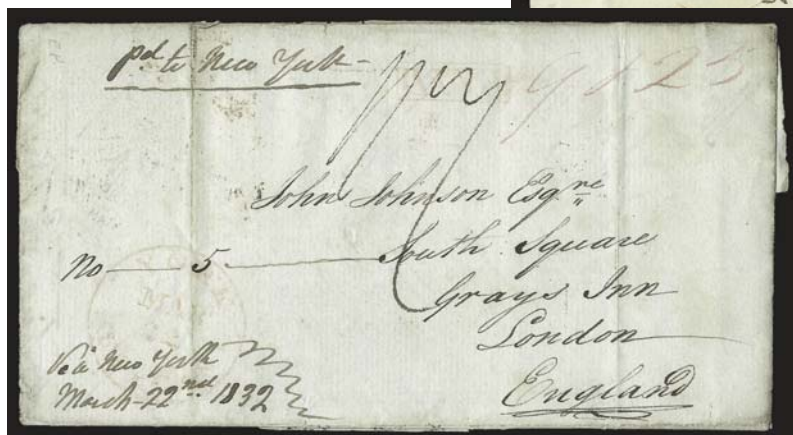 pd to New York
John Johnson Esqre
No 5 South Square
Grays Inn
London
England
Via New York
March 22nd 1832